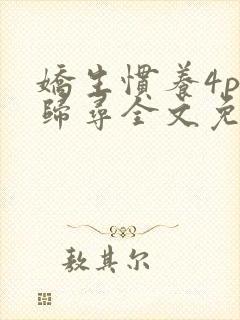 嬌生慣養4p
歸尋全文免
敖其尔